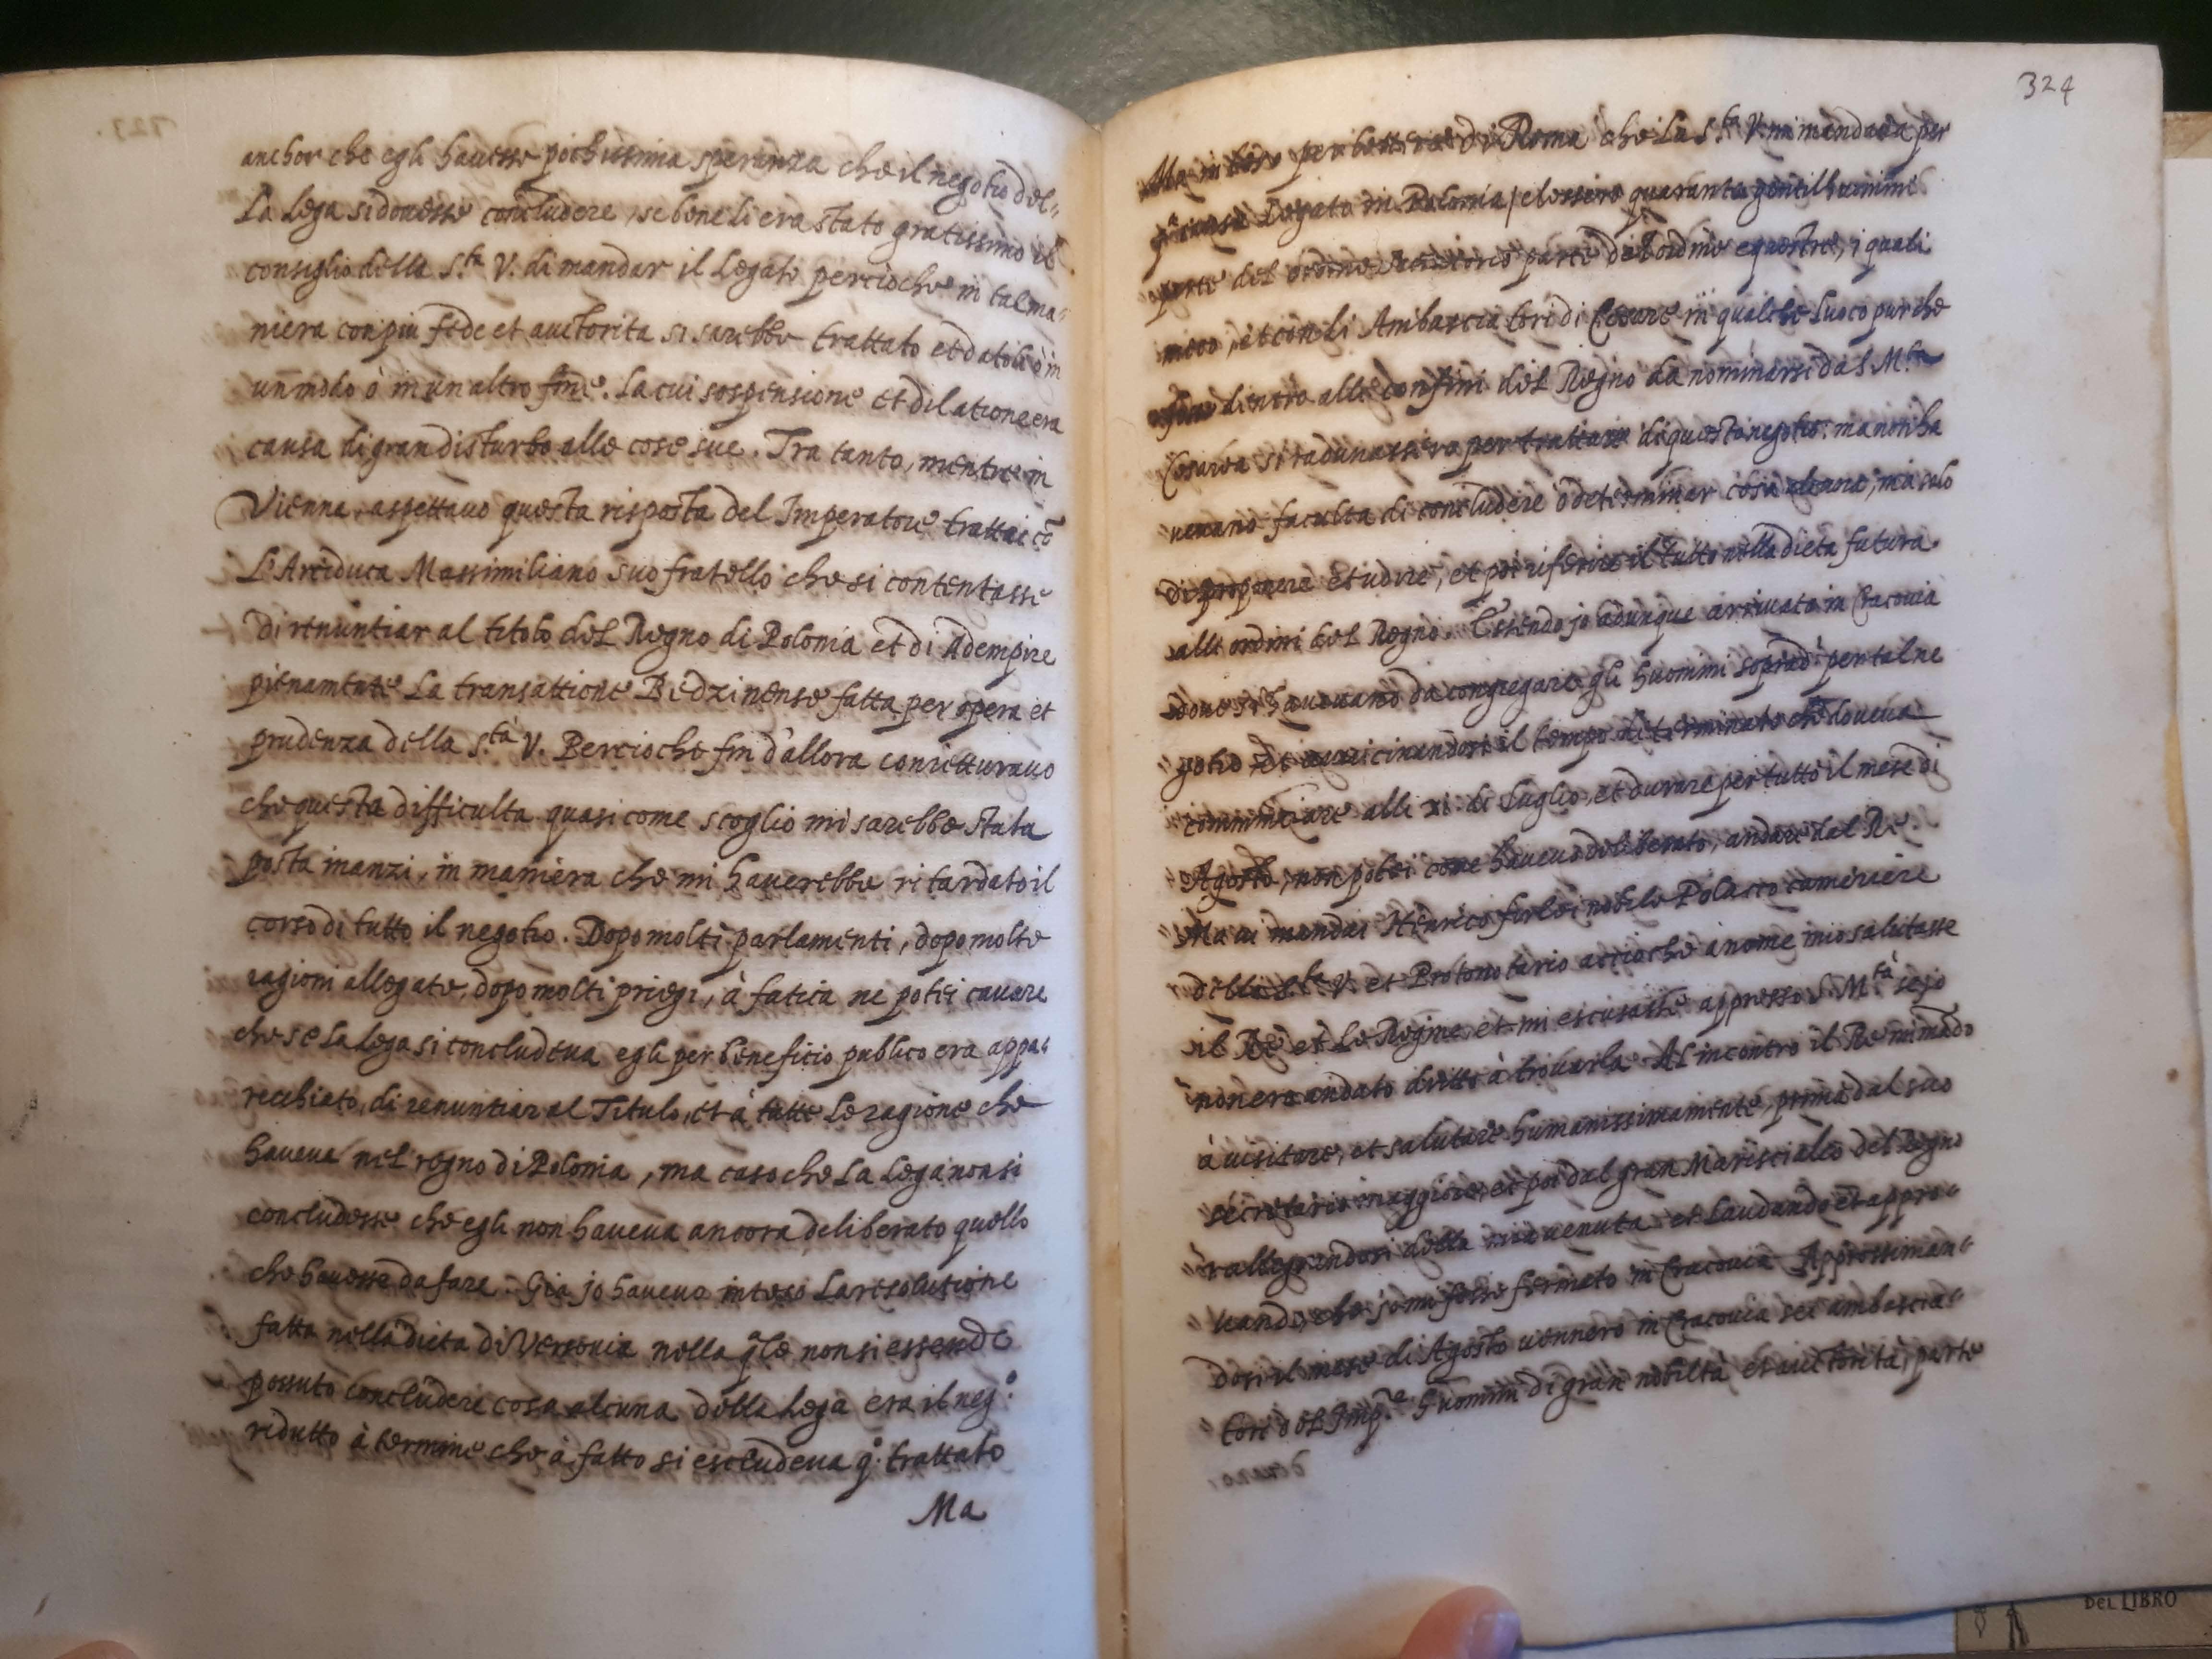 anchor che egli havesse pochissima speranza che il negotio del=
La Lega si dovesse concludere, se bene li era stato gratissimo il
consiglio della S.ta V. di mandar il Legato percioche in tal ma=
niera con piu fede et auctorita si sarebbe trattato et datoli ò in
un modo ò in un altro fine. La cui sospensione et dilatione era
causa di gran disturbo alle cose sue. Tra tanto, mentre in
Vienna, aspettavo questa risposta del Imperatore trattai cō
L'Arciduca Massimiliano suo fratello che si contentasse
di renuntiar al titolo del Regno di Polonia et di Adempire
pienamente La transattione Bedzinense fatta per opera et
prudenza della S.tà V. Percioche fin d'allora conietturavo
che questa difficulta quasi come scoglio mi sarebbe stata
posta inanzi, in maniera che mi haverebbe ritardato il
corso di tutto il negotio. Dopo molti parlamenti, dopo molte
ragioni allegate, dopo molti priegi, à fatica ne potei cavare
che se La Lega si concludeva egli per beneficio publico era appa=
recchiato, di renuntiar al Titulo, et à tutte Le ragione che
haveva nel regno di Polonia, ma caso che La Lega non si
concludesse che egli non haveva ancora deliberato quello
che havesse da fare. Gia jo havevo inteso La resolutione
fatta nella dieta di Versovia nella q.le non si essendo
possuto concludere cosa alcuna della Lega era il neg.o
ridutto à termine che à fatto si escludeva q.o trattato
Ma
324
Ma per lettere di Roma che La S.ta V. mi mandava per
Legato in Polonia, elessero quaranta gentilhuomini
parte del ordine Senatorio parte del ordine equestre, i quali
meco, et con li Ambasciatori di Cesare in qualche Luoco pur che
dentro alli confini del Regno da nominarsi da S. M.tà
Cesarea si radunassero per trattare di questo negotio: ma non ha
vevano faculta di concludere ò determinar cosa alcuna, ma solo
di proponere et udire, et poi riferire il tutto nella dieta futura
alli ordini del Regno. Essendo jo adunque arrivato in Cracovia
dove si havevano da congregare gli huomini sopradi per tal ne
gotio et avvicinandosi il tempo determinato che doveva
comminciare alli xi di Luglio, et durare per tutto il mese di
Agosto, non potei come havevo deliberato, andare dal Re.
Ma vi mandai Henrico firlei nobile Polacco cameriere
della S.ta V. et Protonotario accioche à nome mio salutasse
il Re et Le Regine, et mi escusasse appresso S. M.tà se jo
non ero andato dritto à trovarla. Al incontro il Re mi mādo
à visitare, et salutare humanissimamente, prima dal suo
secretario maggiore, et poi dal gran Marisciallo del Regno
rallegrandosi della mia venuta et Laudando et appro=
vando, che jo mi fosse fermato in Cracovia. Approssiman=
dosi il mese di Agosto vennero in Cracovia sei ambascia=
tori del Imp.re huomini di gran nobiltà et auctorità, parte